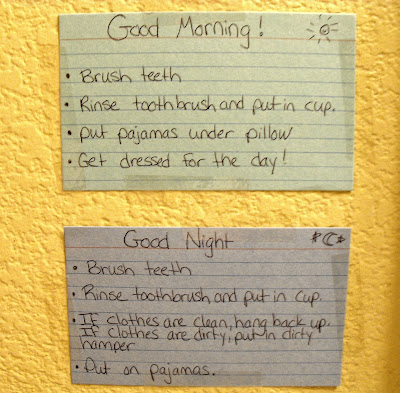 Good Morning!
• Brush teeth
• Rinse toothbrush and put in cup.
• put pajamas under pillow
• Get dressed for the day!
Good Night
• Brush teeth
• Rinse toothbrush and put in cup.
• IF clothes are clean, hang back up.
IF clothes are dirty, put in dirty
hamper
• Put on pajamas.